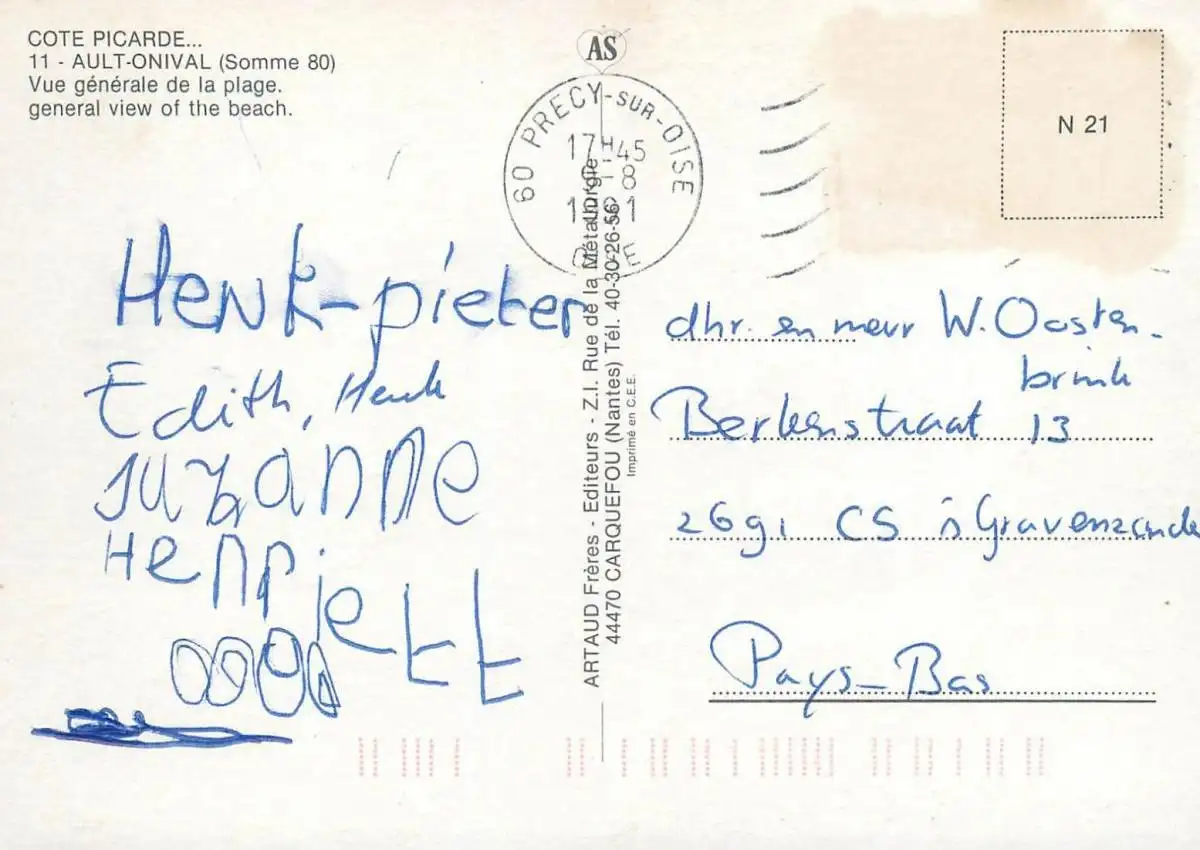 COTE PICARDE...
11 - AULT-ONIVAL (Somme 80)
Vue générale de la plage.
general view of the beach.
AS
60 PRECY-SUR-OISE
17H45
N 21
Henk-pieter
Edith, Henk
suzanne
Henriett
dhr. en mevr W. Oosten-
brink
Berkenstraat 13
2691 CS 's Gravenzande
Pays-Bas
ARTAUD Frères - Editeurs - Z.I. Rue de la Métallurgie
44470 CARQUEFOU (Nantes) Tél. 40-30-26-56
Imprimé en C.E.E.